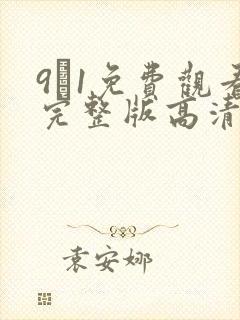 91免費觀看
完整版高清
袁安娜